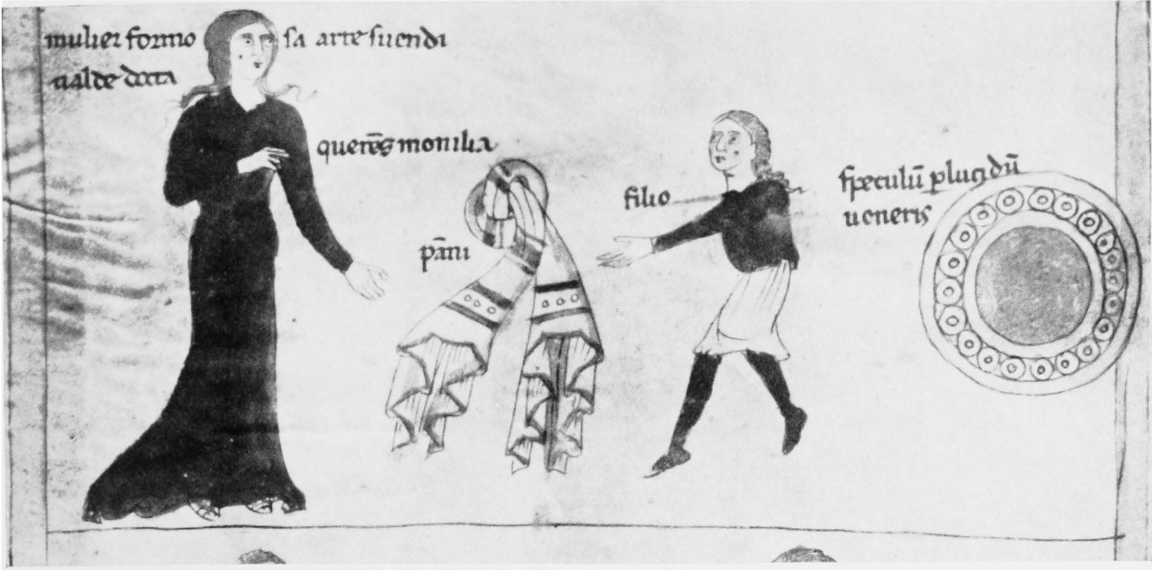 mulier formo sa arte suendi
ualde docta
querēs monilia
pāni
filio
speculū plucidū
ueneris